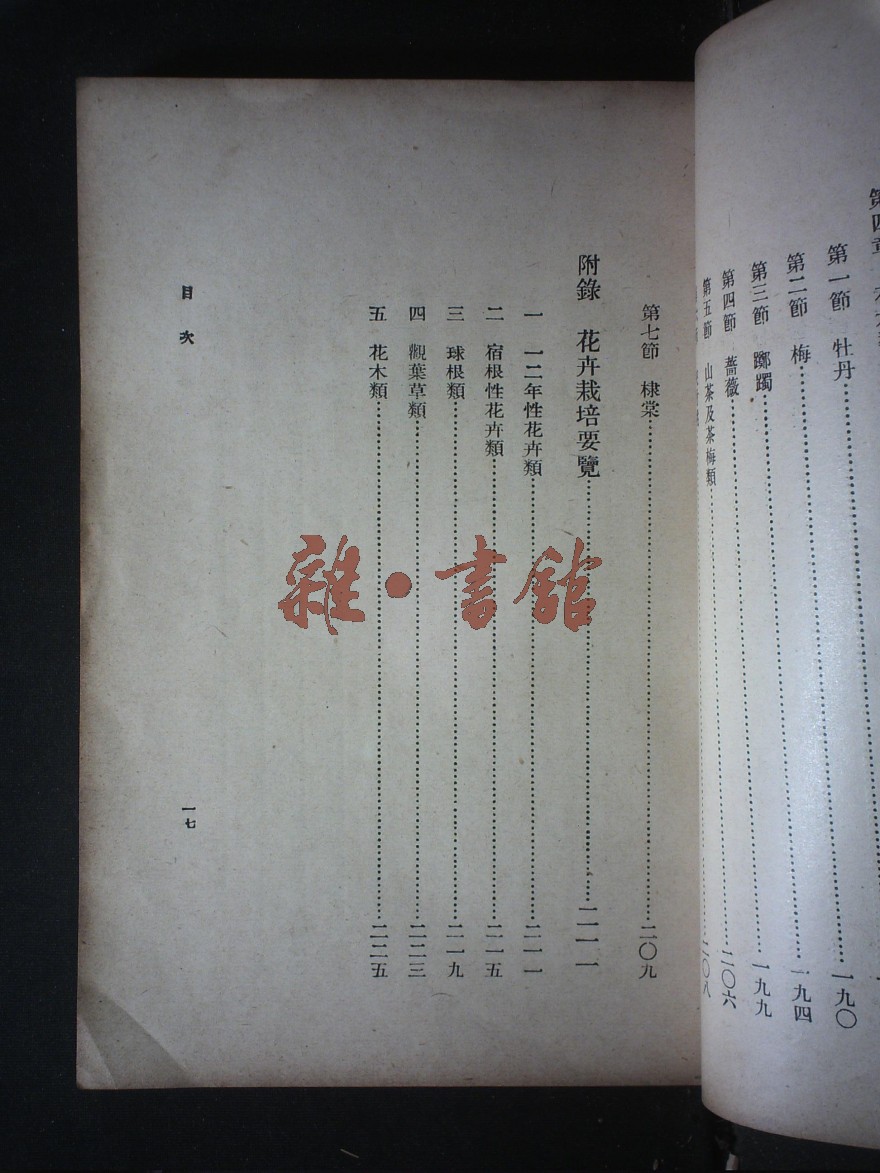 第四章
第一節 牡丹……一九〇
第二節 梅……一九四
第三節 躑躅……一九九
第四節 薔薇……二〇六
第五節 山茶及茶梅類……二〇八
第七節 棣棠……二〇九
附錄 花卉栽培要覽……二一一
一 一二年性花卉類……二一一
二 宿根性花卉類……二一五
三 球根類……二一九
四 觀葉草類……二二三
五 花木類……二二五
目次
一七
雜·書館